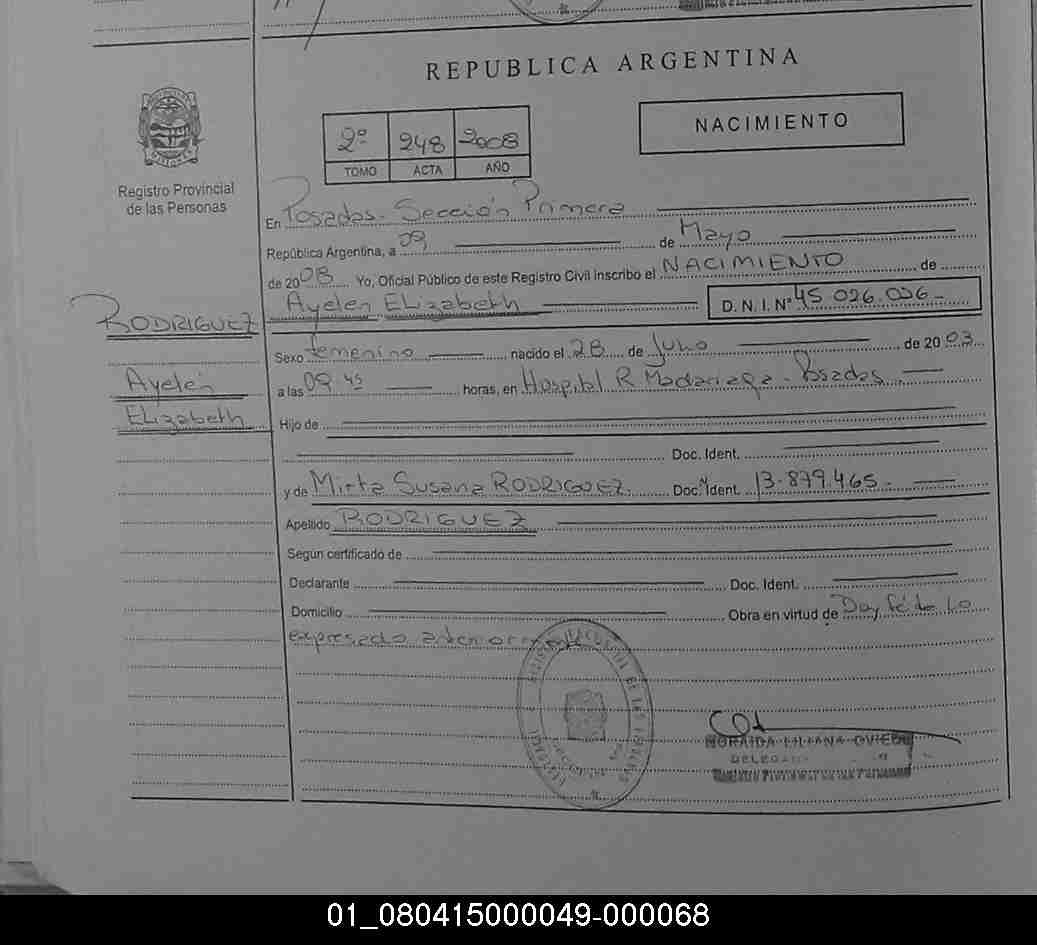 REPUBLICA ARGENTINA
NACIMIENTO
2º 248 2008
TOMO ACTA AÑO
Registro Provincial
de las Personas
En Posadas - Sección Primera
República Argentina, a 09 de Mayo
de 2008 Yo, Oficial Público de este Registro Civil inscribo el NACIMIENTO de
Ayelén Elizabeth D. N. I. Nº 45.026.036
RODRIGUEZ
Sexo femenino nacido el 28 de Junio de 2003
Ayelén
a las 09 45 horas, en Hospital R Madariaga - Posadas
Elizabeth
Hijo de
Doc. Ident.
y de Mirta Susana RODRIGUEZ Doc. Ident. 13.879.465
Apellido RODRIGUEZ
Según certificado de
Declarante Doc. Ident.
Domicilio Obra en virtud de Doy fé de lo
expresado anteriormente
NORAIDA LILIANA OVIEDO
01_080415000049-000068